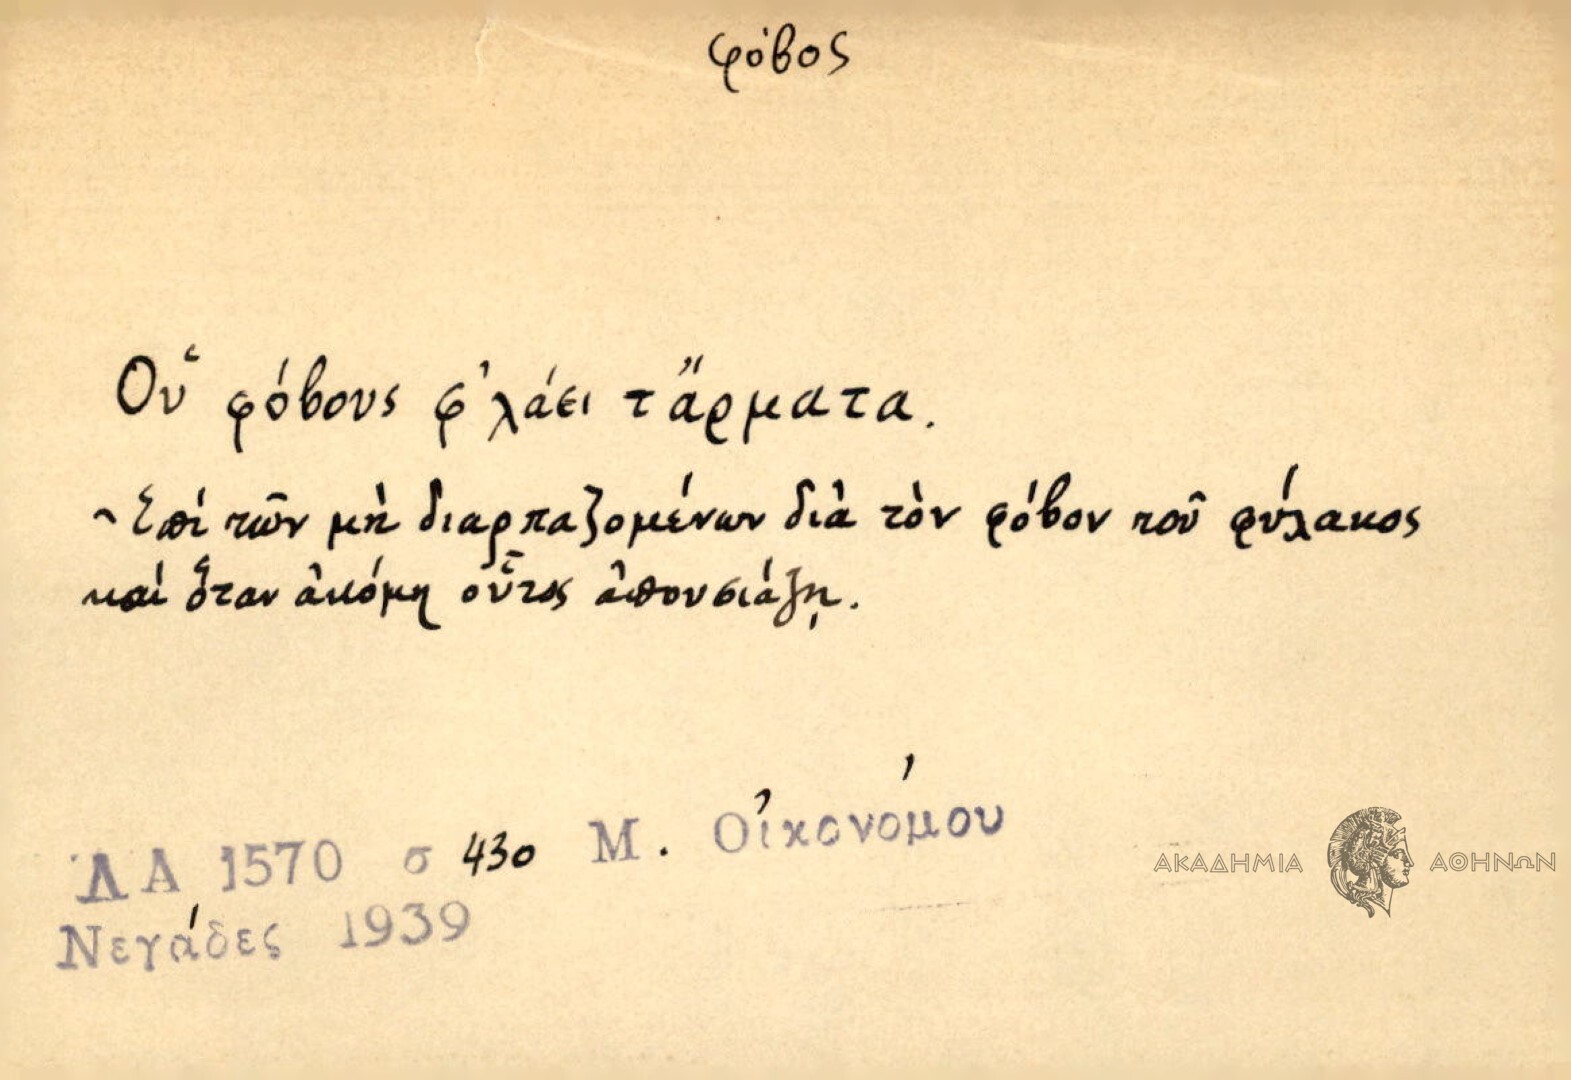 φόβος
Οὑ φόβους φ'λάει τ' ἄρματα.
~ Ἐπί τῶν μὴ διαρπαζομένων διὰ τὸν φόβον τοῦ φύλακος
καί ὅταν ἀκόμη οὗτος ἀπουσιάζῃ.
ΛΑ 1570 σ 430 Μ. Οἰκονόμου
Νεγάδες 1939
ΑΚΑΔΗΜΙΑ ΑΘΗΝΩΝ